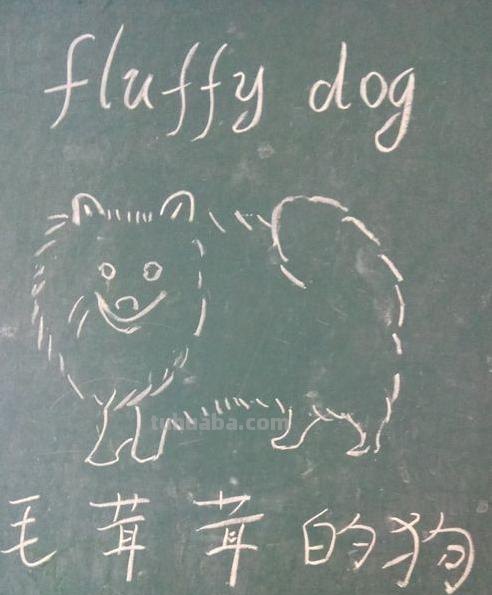 fluffy dog
tuhuaba.com
毛茸茸的狗